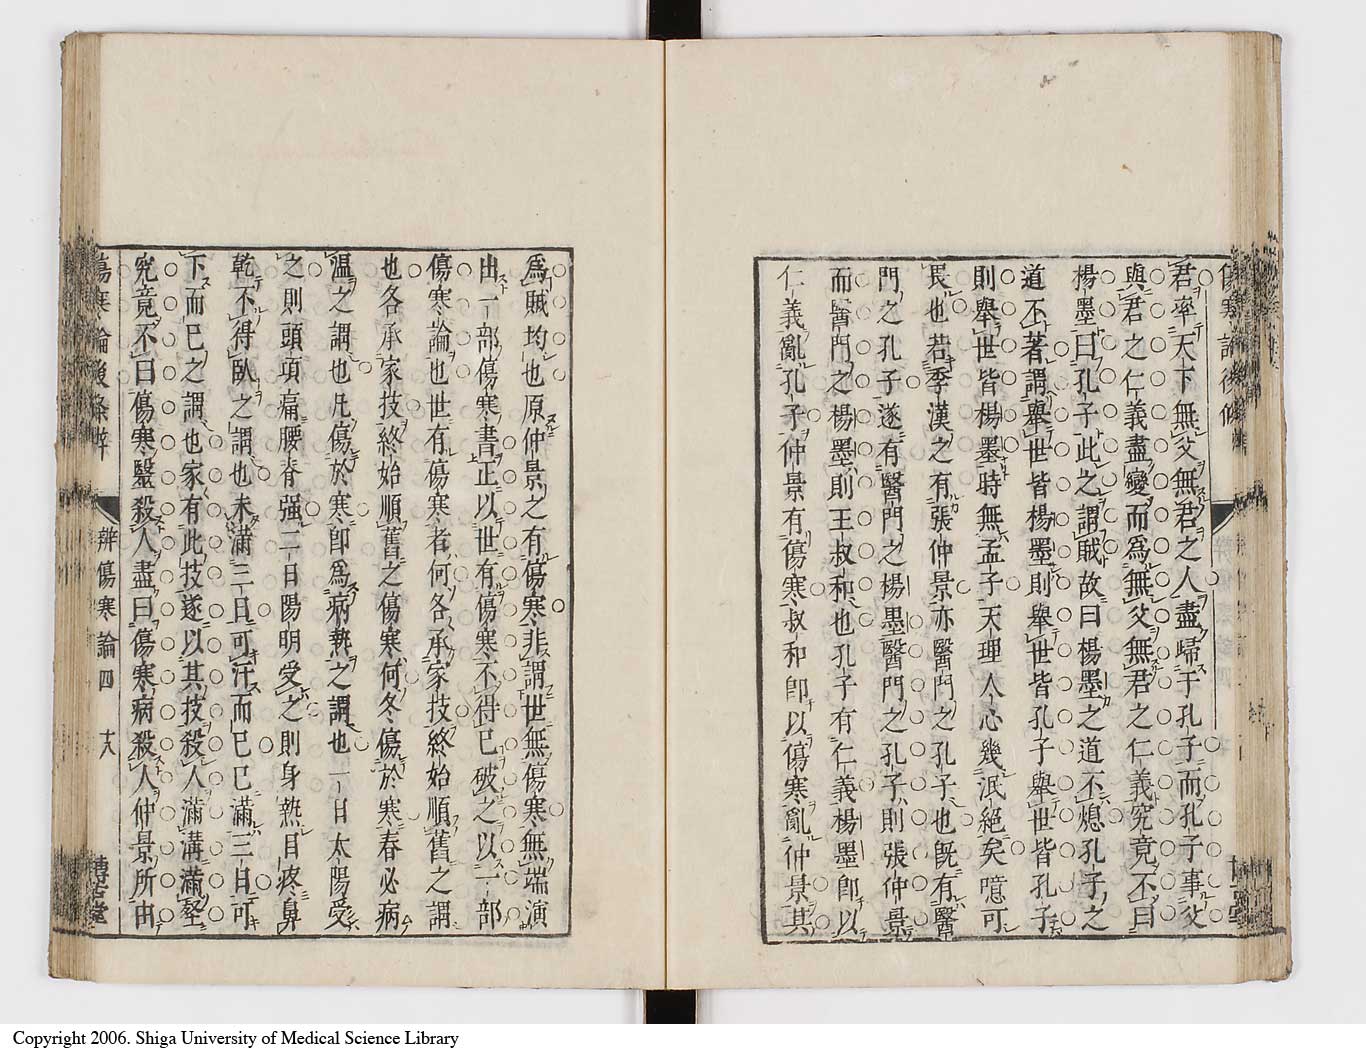 君率天下無父無君之人盡歸于孔子而孔子事父
與君之仁義盡變而爲無父無君之仁義究竟不曰
楊墨曰孔子此之謂賊故曰楊墨之道不熄孔子之
道不著謂舉世皆楊墨則舉世皆孔子舉世皆孔子
則舉世皆楊墨時無孟子天理人心幾泯絕矣噫可
畏也若季漢之有張仲景亦醫門之孔子也既有醫
門之孔子遂有醫門之楊墨醫門之孔子則張仲景
而醫門之楊墨則王叔和也孔子有仁義楊墨卽以
仁義亂孔子仲景有傷寒叔和卽以傷寒亂仲景其
爲賊均也原仲景之有傷寒非謂世無傷寒無端演
出一部傷寒書正以世有傷寒不得已破之以一部
傷寒論也世有傷寒者何各承家技終始順舊之謂
也各承家技終始順舊之傷寒何冬傷於寒春必病
溫之謂也凡傷於寒卽爲病熱之謂也一日太陽受
之則頭項痛腰脊强二日陽明受之則身熱目疼鼻
乾不得臥之謂也未滿三日可汗而已已滿三日可
下而已之謂也家有此技遂以其技殺人滿溝滿壑
究竟不曰傷寒醫殺人盡曰傷寒病殺人仲景所由
傷寒論後條辨 辨傷寒論四 十八 博古堂